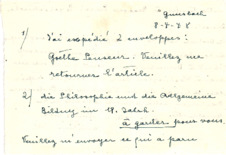 Gunsbach
8-7-78
1/ J'ai expédié 2 enveloppes:
Goethe Penseur. Veuillez me
retourner l'article.
2/ die Philosophie und die Allgemeine
Bildung im 19. Jahrh.
à garder pour vous.
Veuillez m'envoyer ce qui a paru